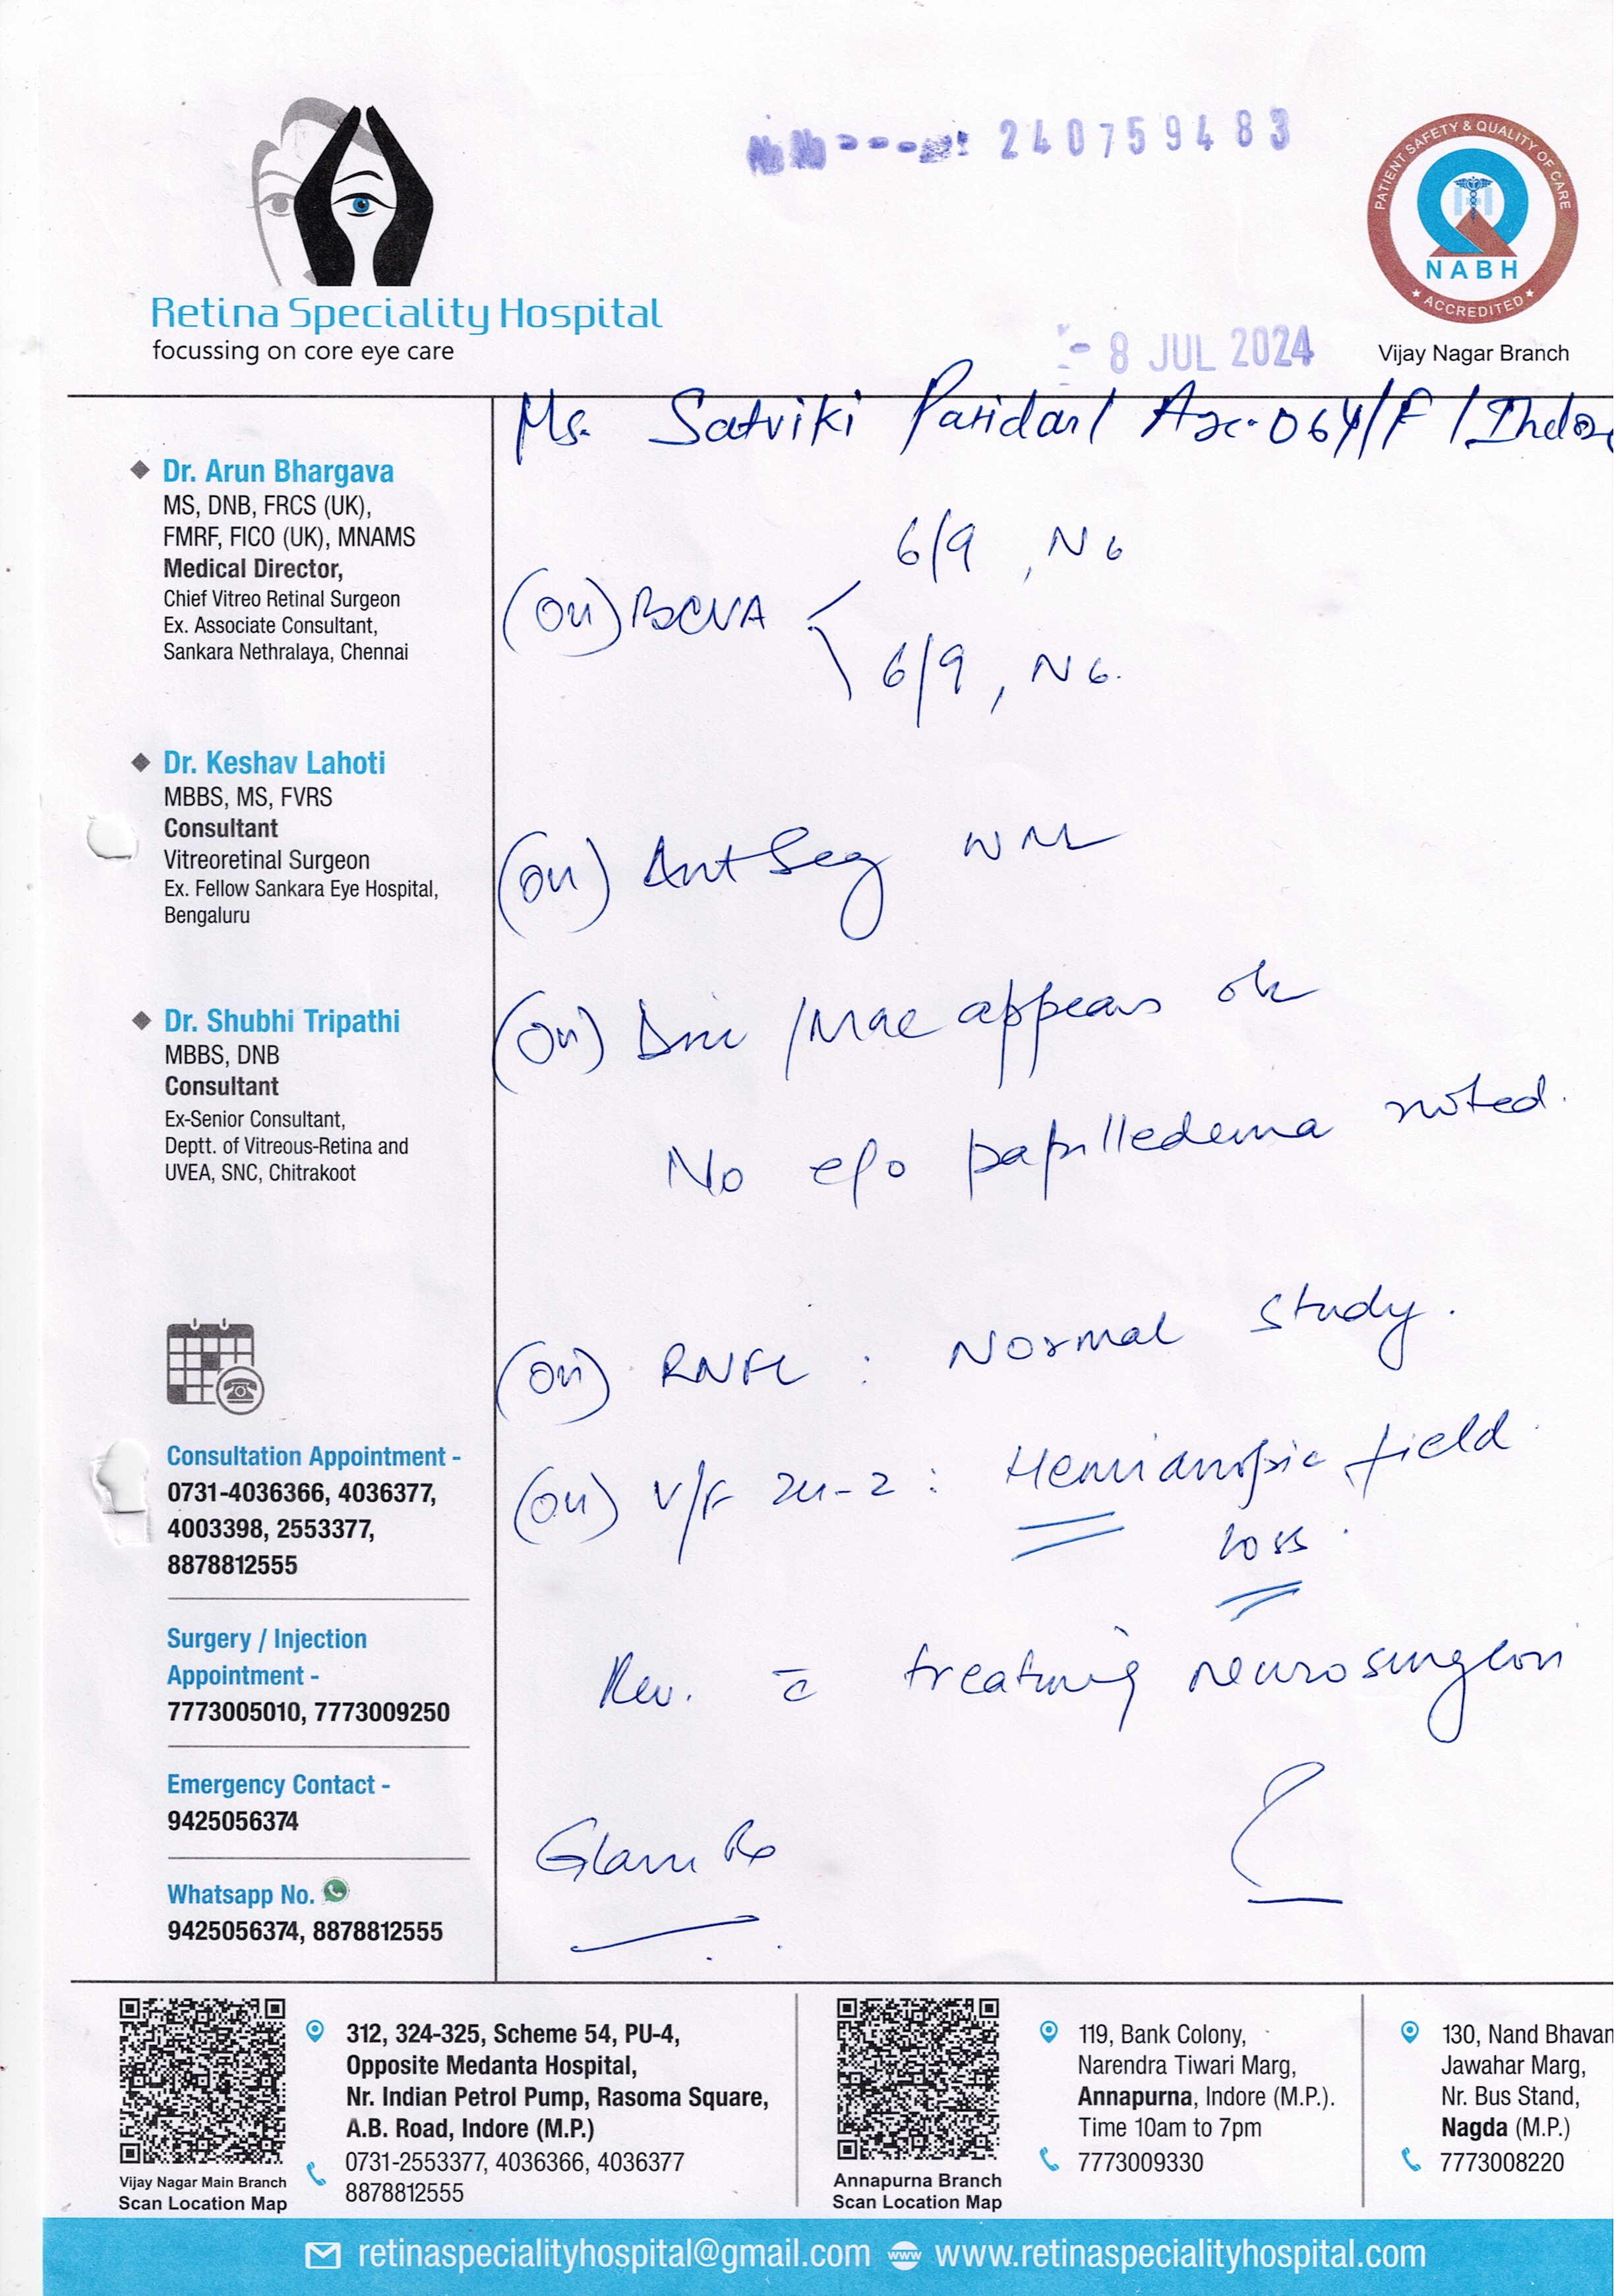 240759483
PATIENT SAFETY & QUALITY OF CARE
NABH
ACCREDITED
Retina Speciality Hospital
focussing on core eye care
8 JUL 2024
Vijay Nagar Branch
Ms. Satviki Patidar/ Age-06Y/F /Indo
Dr. Arun Bhargava
MS, DNB, FRCS (UK),
FMRF, FICO (UK), MNAMS
Medical Director,
Chief Vitreo Retinal Surgeon
Ex. Associate Consultant,
Sankara Nethralaya, Chennai
Dr. Keshav Lahoti
MBBS, MS, FVRS
Consultant
Vitreoretinal Surgeon
Ex. Fellow Sankara Eye Hospital,
Bengaluru
Dr. Shubhi Tripathi
MBBS, DNB
Consultant
Ex-Senior Consultant,
Deptt. of Vitreous-Retina and
UVEA, SNC, Chitrakoot
Consultation Appointment -
0731-4036366, 4036377,
4003398, 2553377,
8878812555
Surgery / Injection
Appointment -
7773005010, 7773009250
Emergency Contact -
9425056374
Whatsapp No.
9425056374, 8878812555
6/9, N6
(OU) BCVA
6/9, N6.
(OU) Ant Seg WNL
(OU) Disc /Mac appears ok
No e/o papilledema noted.
(OU) RNFL : Normal study.
(OU) V/F 24-2 : Hemianopic field
loss.
Rev. c̄ treating neurosurgeon
Glass Rx
Vijay Nagar Main Branch
Scan Location Map
312, 324-325, Scheme 54, PU-4,
Opposite Medanta Hospital,
Nr. Indian Petrol Pump, Rasoma Square,
A.B. Road, Indore (M.P.)
0731-2553377, 4036366, 4036377
8878812555
Annapurna Branch
Scan Location Map
119, Bank Colony,
Narendra Tiwari Marg,
Annapurna, Indore (M.P.).
Time 10am to 7pm
7773009330
130, Nand Bhavan
Jawahar Marg,
Nr. Bus Stand,
Nagda (M.P.)
7773008220
retinaspecialityhospital@gmail.com www.retinaspecialityhospital.com